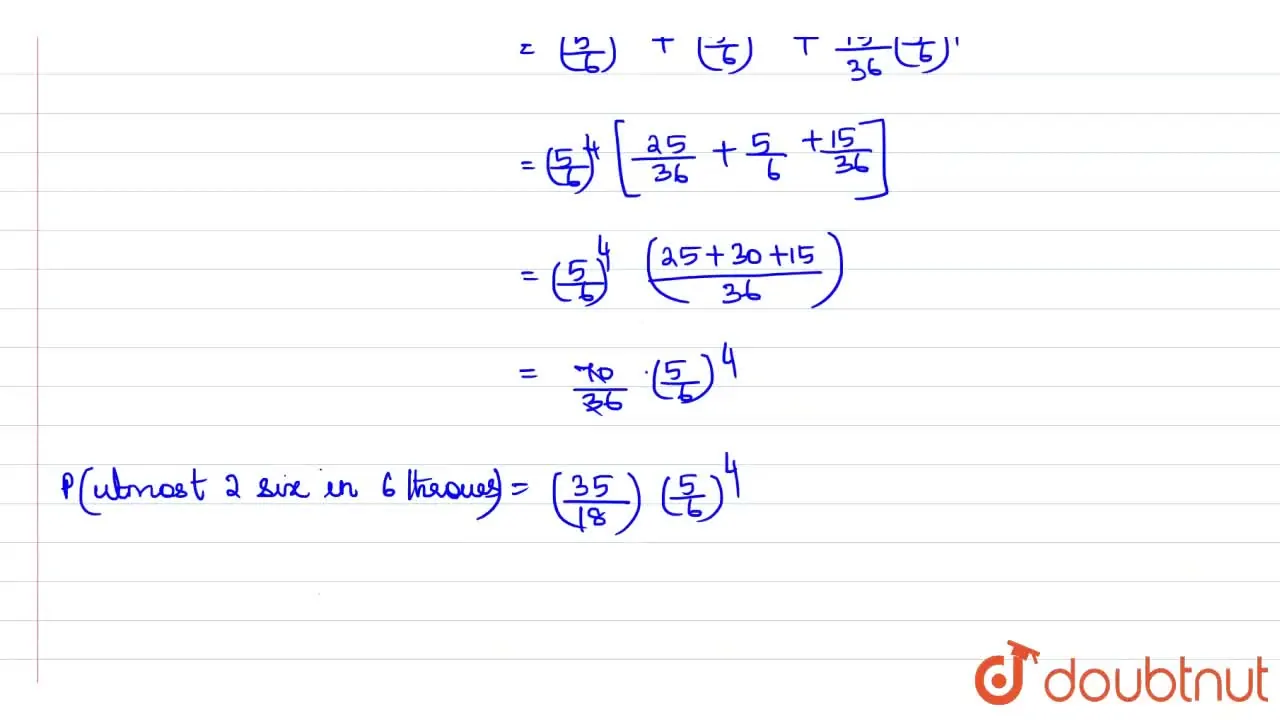 = (5/6) + (5/6) + 15/36 (5/6)
= (5/6)⁴ [25/36 + 5/6 + 15/36]
= (5/6)⁴ ((25+30+15)/36)
= 70/36 · (5/6)⁴
P(utmost 2 six in 6 throws) = (35/18) (5/6)⁴
doubtnut